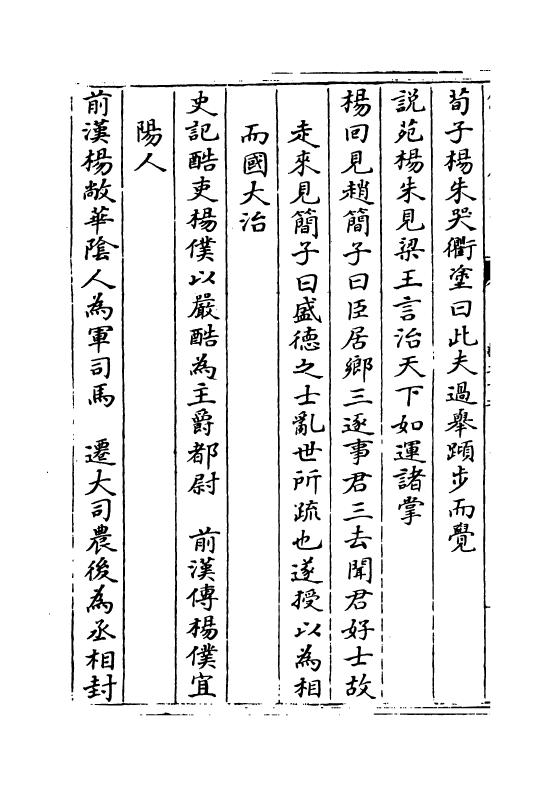 荀子楊朱哭衢塗曰此夫過舉蹞步而覺
説苑楊朱見梁王言治天下如運諸掌
楊回見趙簡子曰臣居鄉三逐事君三去聞君好士故
走來見簡子曰盛徳之士亂世所疏也遂授以為相
而國大治
史記酷吏楊僕以嚴酷為主爵都尉　前漢傳楊僕宜
陽人
前漢楊敞華陰人為軍司馬　遷大司農後為丞相封